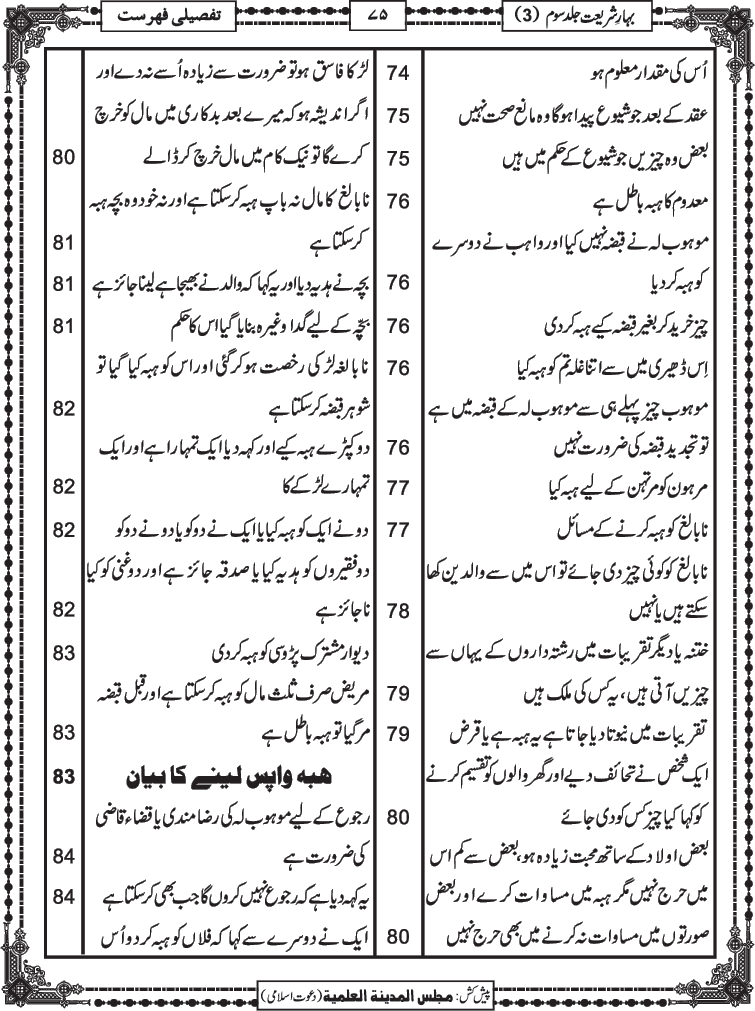 بہار شریعت جلد سوم (3)
۷۵
تفصیلی فہرست
اُس کی مقدار معلوم ہو
74
عقد کے بعد جو شیوع پیدا ہوگا وہ مانع صحت نہیں
75
بعض وہ چیزیں جو شیوع کے حکم میں ہیں
75
معدوم کا ہبہ باطل ہے
76
موہوب لہ نے قبضہ نہیں کیا اور واہب نے دوسرے
کو ہبہ کر دیا
76
چیز خرید کر بغیر قبضہ کیے ہبہ کر دی
76
اِس ڈھیری میں سے اتنا غلہ تم کو ہبہ کیا
76
موہوب چیز پہلے ہی سے موہوب لہ کے قبضہ میں ہے
تو تجدید قبضہ کی ضرورت نہیں
76
مرہون کو مرتہن کے لیے ہبہ کیا
77
نابالغ کو ہبہ کرنے کے مسائل
77
نابالغ کو کوئی چیز دی جائے تو اس میں سے والدین کھا
سکتے ہیں یا نہیں
78
ختنہ یا دیگر تقریبات میں رشتہ داروں کے یہاں سے
چیزیں آتی ہیں، یہ کس کی ملک ہیں
79
تقریبات میں نیوتا دیا جاتا ہے یہ ہبہ ہے یا قرض
79
ایک شخص نے تحائف دیے اور گھر والوں کو تقسیم کرنے
کو کہا کیا چیز کس کو دی جائے
80
بعض اولاد کے ساتھ محبت زیادہ ہو، بعض سے کم اس
میں حرج نہیں مگر ہبہ میں مساوات کرے اور بعض
صورتوں میں مساوات نہ کرنے میں بھی حرج نہیں
80
لڑکا فاسق ہو تو ضرورت سے زیادہ اُسے نہ دے اور
اگر اندیشہ ہو کہ میرے بعد بدکاری میں مال کو خرچ
کرے گا تو نیک کام میں مال خرچ کر ڈالے
80
نابالغ کا مال نہ باپ ہبہ کر سکتا ہے اور نہ خود وہ بچہ ہبہ
کر سکتا ہے
81
بچہ نے ہدیہ دیا اور یہ کہا کہ والد نے بھیجا ہے لینا جائز ہے
81
بچّہ کے لیے گدا وغیرہ بنایا گیا اس کا حکم
81
نابالغہ لڑکی رخصت ہو کر گئی اور اس کو ہبہ کیا گیا تو
شوہر قبضہ کر سکتا ہے
82
دو کپڑے ہبہ کیے اور کہہ دیا ایک تمہارا ہے اور ایک
تمہارے لڑکے کا
82
دو نے ایک کو ہبہ کیا یا ایک نے دو کو یا دو نے دو کو
82
دو فقیروں کو ہدیہ کیا یا صدقہ جائز ہے اور دو غنی کو کیا
ناجائز ہے
82
دیوار مشترک پڑوسی کو ہبہ کر دی
83
مریض صرف ثلث مال کو ہبہ کر سکتا ہے اور قبل قبضہ
مر گیا تو ہبہ باطل ہے
83
ھبہ واپس لینے کا بیان
83
رجوع کے لیے موہوب لہ کی رضا مندی یا قضاء قاضی
کی ضرورت ہے
84
یہ کہہ دیا ہے کہ رجوع نہیں کروں گا جب بھی کر سکتا ہے
84
ایک نے دوسرے سے کہا کہ فلاں کو ہبہ کر دو اُس
پیش کش: مجلس المدینۃ العلمیۃ (دعوت اسلامی)